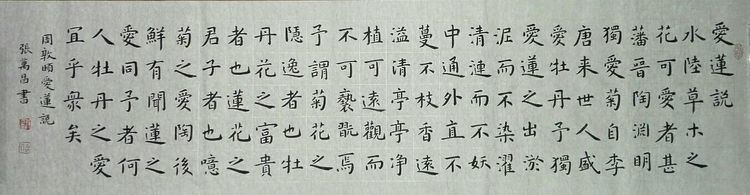 愛蓮說
水陸草木之
花可愛者甚
藩晉陶淵明
獨愛菊自李
唐来世人盛
愛牡丹予獨
愛蓮之出淤
泥而不染濯
清漣而不妖
中通外直不
蔓不枝香遠
溢清亭亭净
植可遠觀而
不可褻翫焉
予謂菊花之
隱逸者也牡
丹花之富貴
者也蓮花之
君子者也噫
菊之愛陶後
鮮有聞蓮之
愛同予者何
人牡丹之愛
宜乎衆矣
周敦頤愛蓮說
張萬昌書